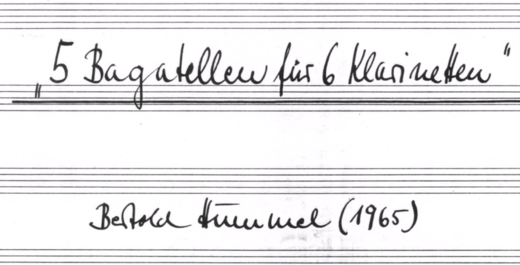 „5 Bagatellen für 6 Klarinetten“
Bertold Hummel (1965)